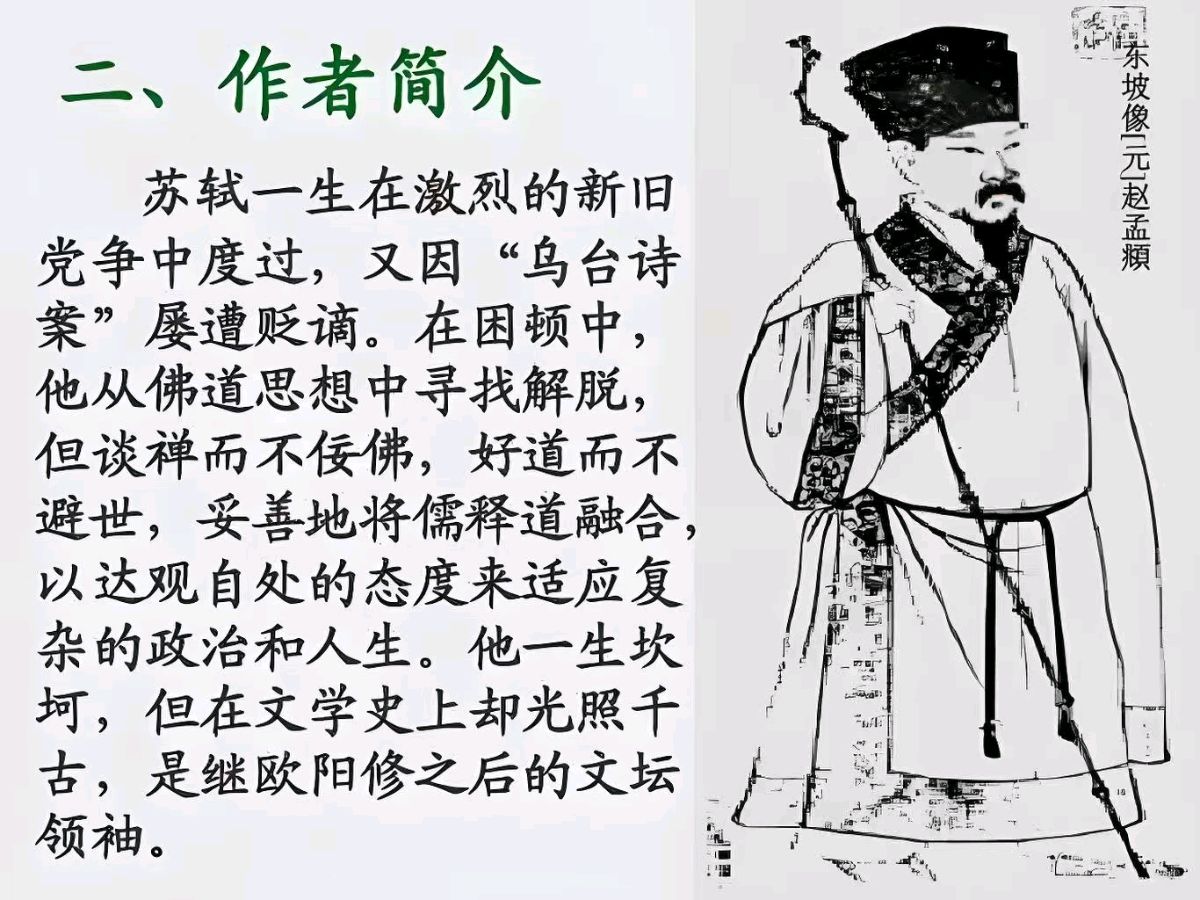 二、作者简介
苏轼一生在激烈的新旧
党争中度过，又因“乌台诗
案”屡遭贬谪。在困顿中，
他从佛道思想中寻找解脱，
但谈禅而不佞佛，好道而不
避世，妥善地将儒释道融合，
以达观自处的态度来适应复
杂的政治和人生。他一生坎
坷，但在文学史上却光照千
古，是继欧阳修之后的文坛
领袖。
东坡像[元]赵孟頫